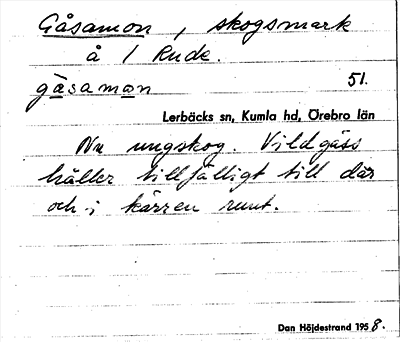 Gåsamon, skogsmark
å 1 Rude.
gåsamon 51.
Lerbäcks sn, Kumla hd, Örebro län
Nu ungskog. Vildgäss
håller tillfälligt till där
och i kärren runt.
Dan Höjdestrand 1958.